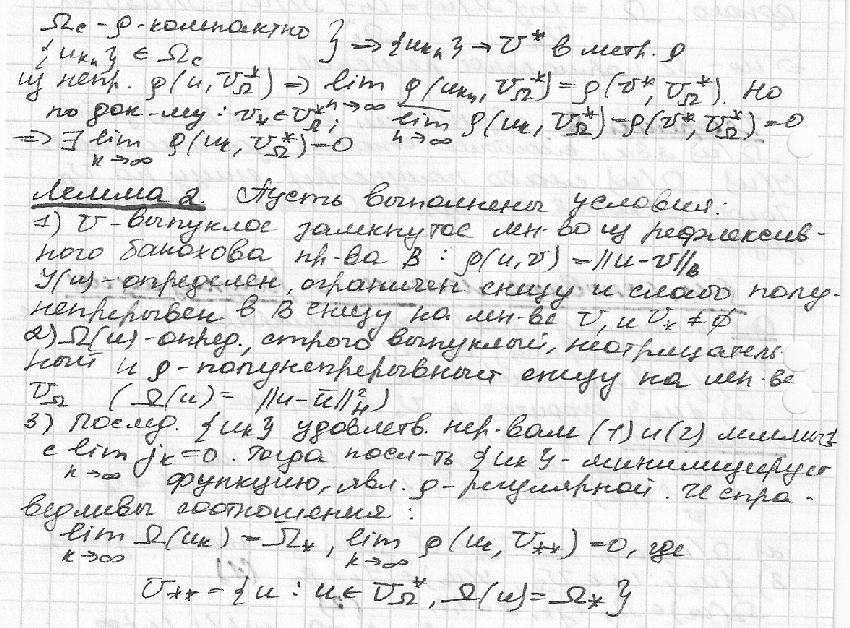 Ω_c - ρ-компактно } => {u_{k_n}} → v* в метр. ρ
{u_{k_n}} ∈ Ω_c
из непр. ρ(u, U_Ω^*) => lim_{n→∞} ρ(u_{k_n}, U_Ω^*) = ρ(v*, U_Ω^*). Но
по док-му: v_* ∈ U_Ω^*; lim_{n→∞} ρ(u_k, U_Ω^*) = ρ(v*, U_Ω^*) = 0
=> ∃ lim_{k→∞} ρ(u_k, U_Ω^*) = 0
Лемма 2. Пусть выполнены условия:
1) U - выпуклое замкнутое мн-во из рефлексив-
ного банахова пр-ва B : ρ(u,v) = ||u-v||_B
J(u) - определен, ограничен снизу и слабо полу-
непрерывен в B снизу на мн-ве U, и U_* ≠ ∅
2) Ω(u) - опред., строго выпуклый, неотрицатель-
ный и ρ-полунепрерывный снизу на мн-ве
U_Ω ( Ω(u) = ||u-ū||²_H )
3) Послед. {u_k} удовлетв. нер-вам (1) и (2) леммы 1
с lim_{k→∞} j_k = 0. Тогда посл-ть {u_k} - минимизирует
функцию, явл. ρ-регулярной. И спра-
ведливы соотношения:
lim_{k→∞} Ω(u_k) = Ω_*, lim_{k→∞} ρ(u_k, U_{**}) = 0, где
U_{**} = {u : u ∈ U_Ω^*, Ω(u) = Ω_*}